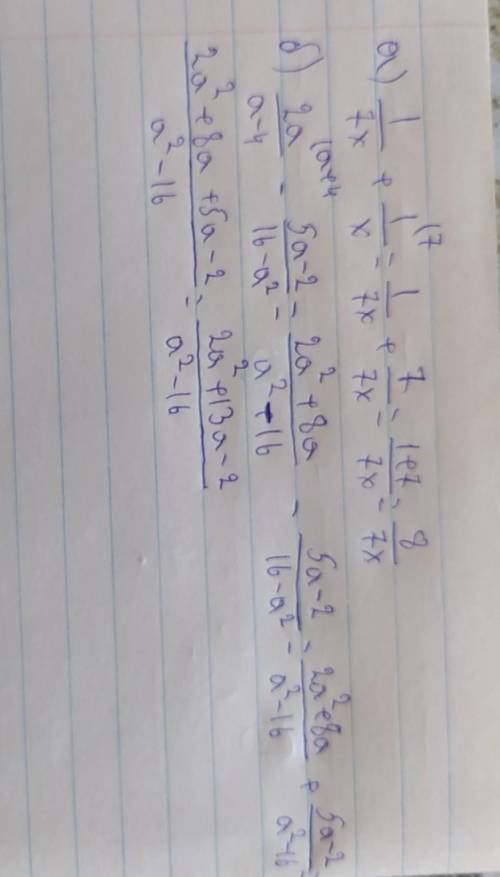 а) 1/7x + 1/x (7 = 1/7x + 7/7x = 1+7/7x = 8/7x
б) 2a/a-4 (a+4 - 5a-2/16-a² = 2a²+8a/a²-16 - 5a-2/16-a² = 2a²+8a/a²-16 + 5a-2/a²-16 =
2a²+8a+5a-2/a²-16 = 2a²+13a-2/a²-16